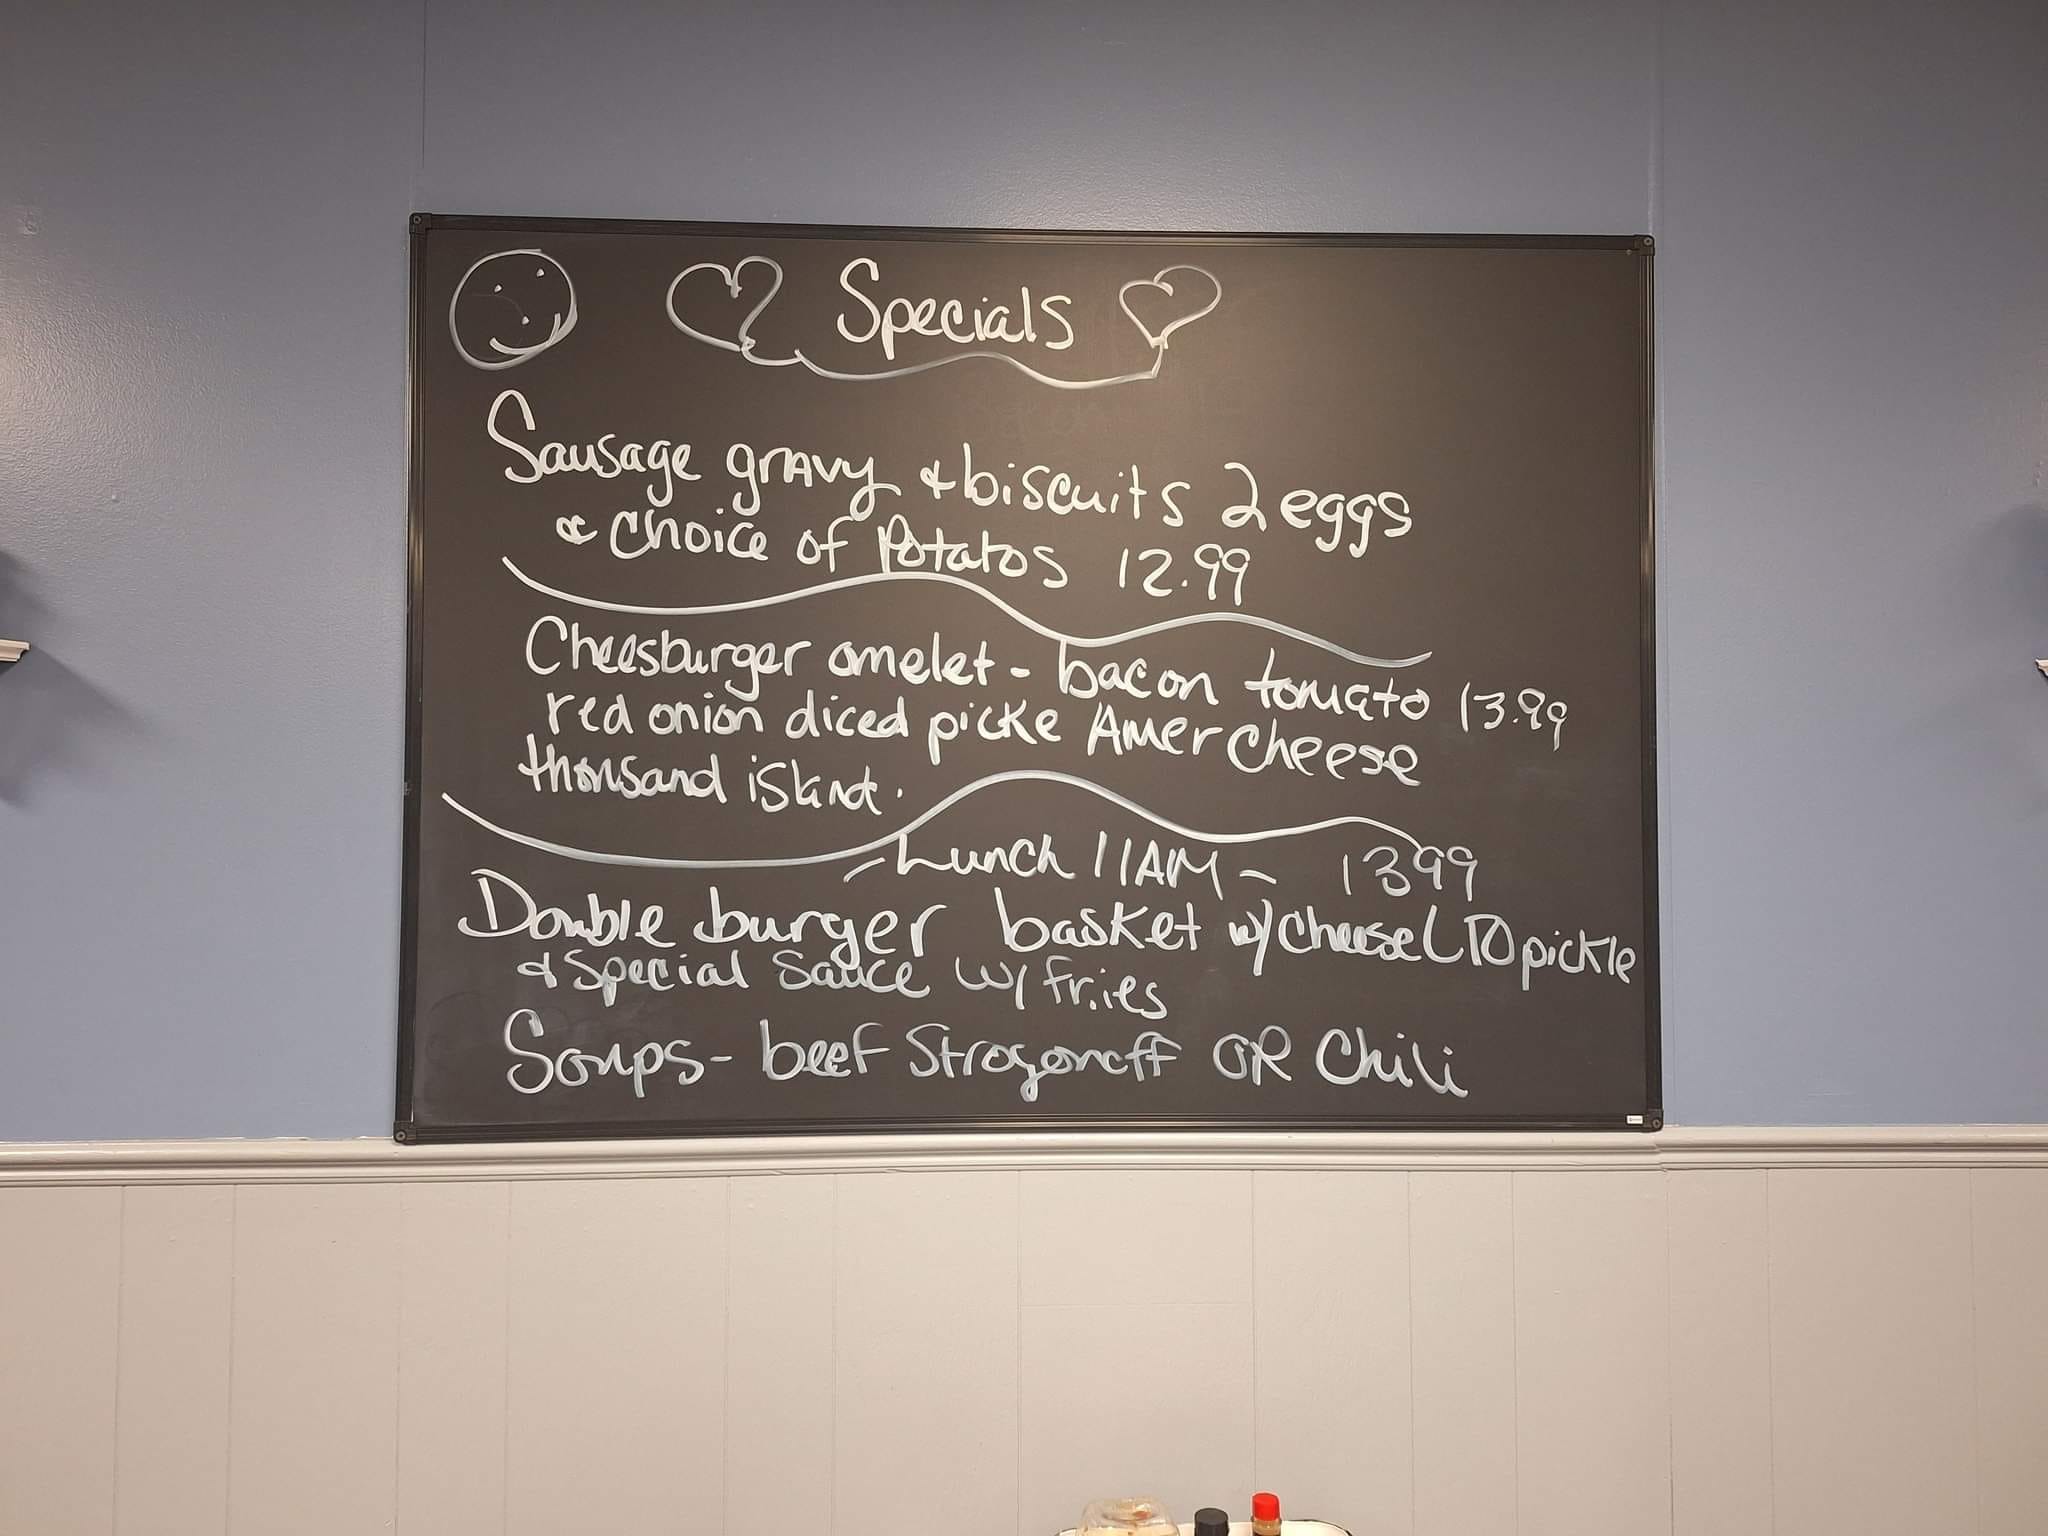 Specials
Sausage gravy & biscuits 2 eggs
& choice of Potatos 12.99
Cheesburger omelet - bacon tomato 13.99
red onion diced picke Amer cheese
thousand island.
- Lunch 11AM - 1399
Double burger basket w/ cheese LTO pickle
& special sauce w/ fries
Soups - beef Strogonoff OR Chili